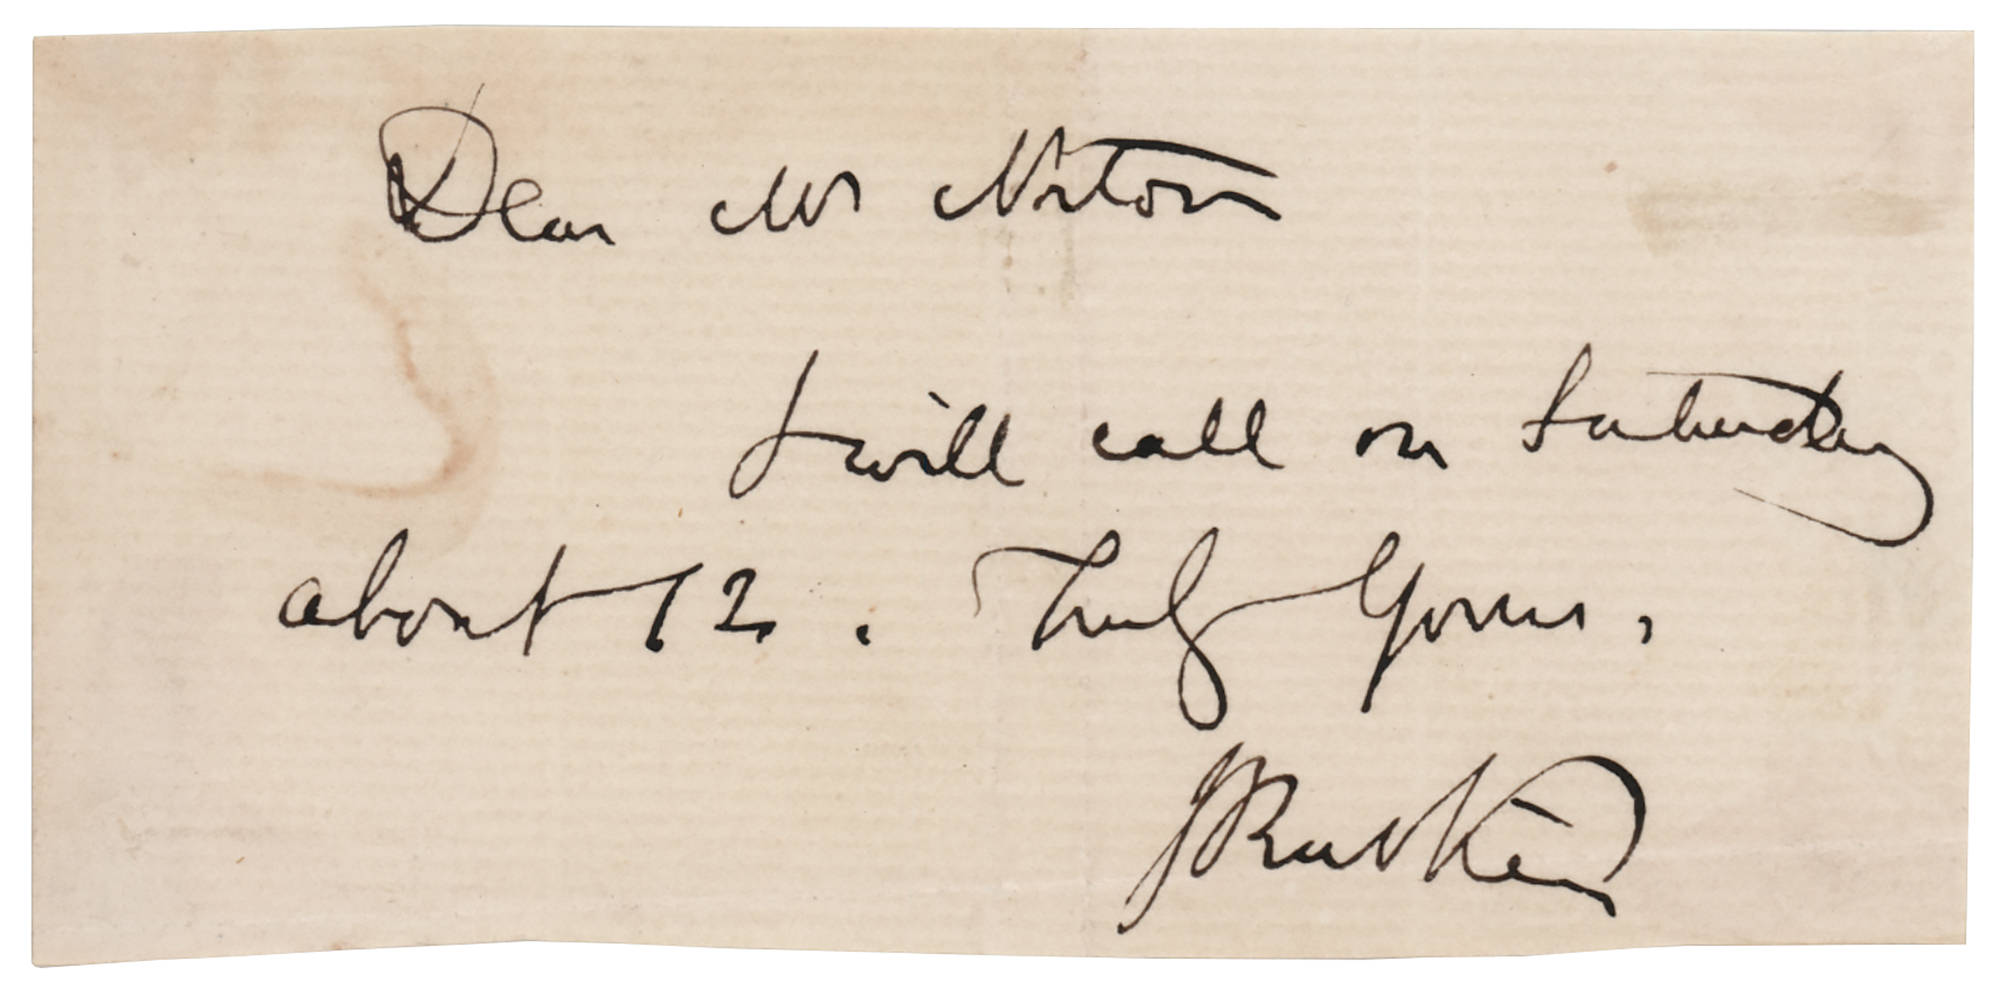 Dear Mr Norton
I will call on Saturday
about 12. Truly Yours,
JRuskin